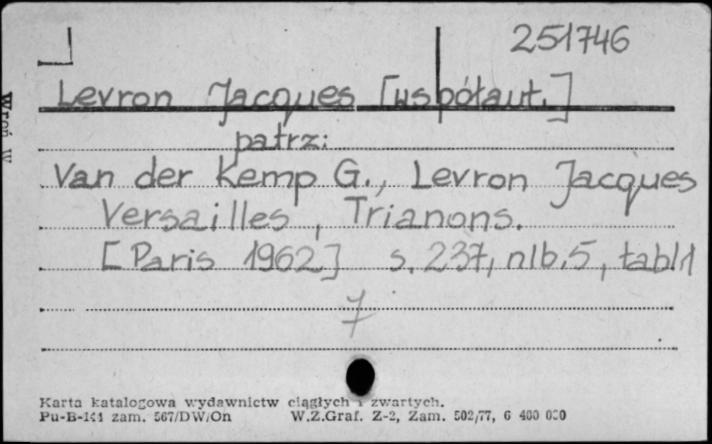 251746
Levron Jacques [współaut.]
patrz:
Van der Kemp G., Levron Jacques
Versailles, Trianons.
[Paris 1962] s. 237, nlb. 5, tabl 1
7
Karta katalogowa wydawnictw ciągłych i zwartych.
Pu-B-141 zam. 567/DW/On W.Z.Graf. Z-2, Zam. 502/77, 6 400 000